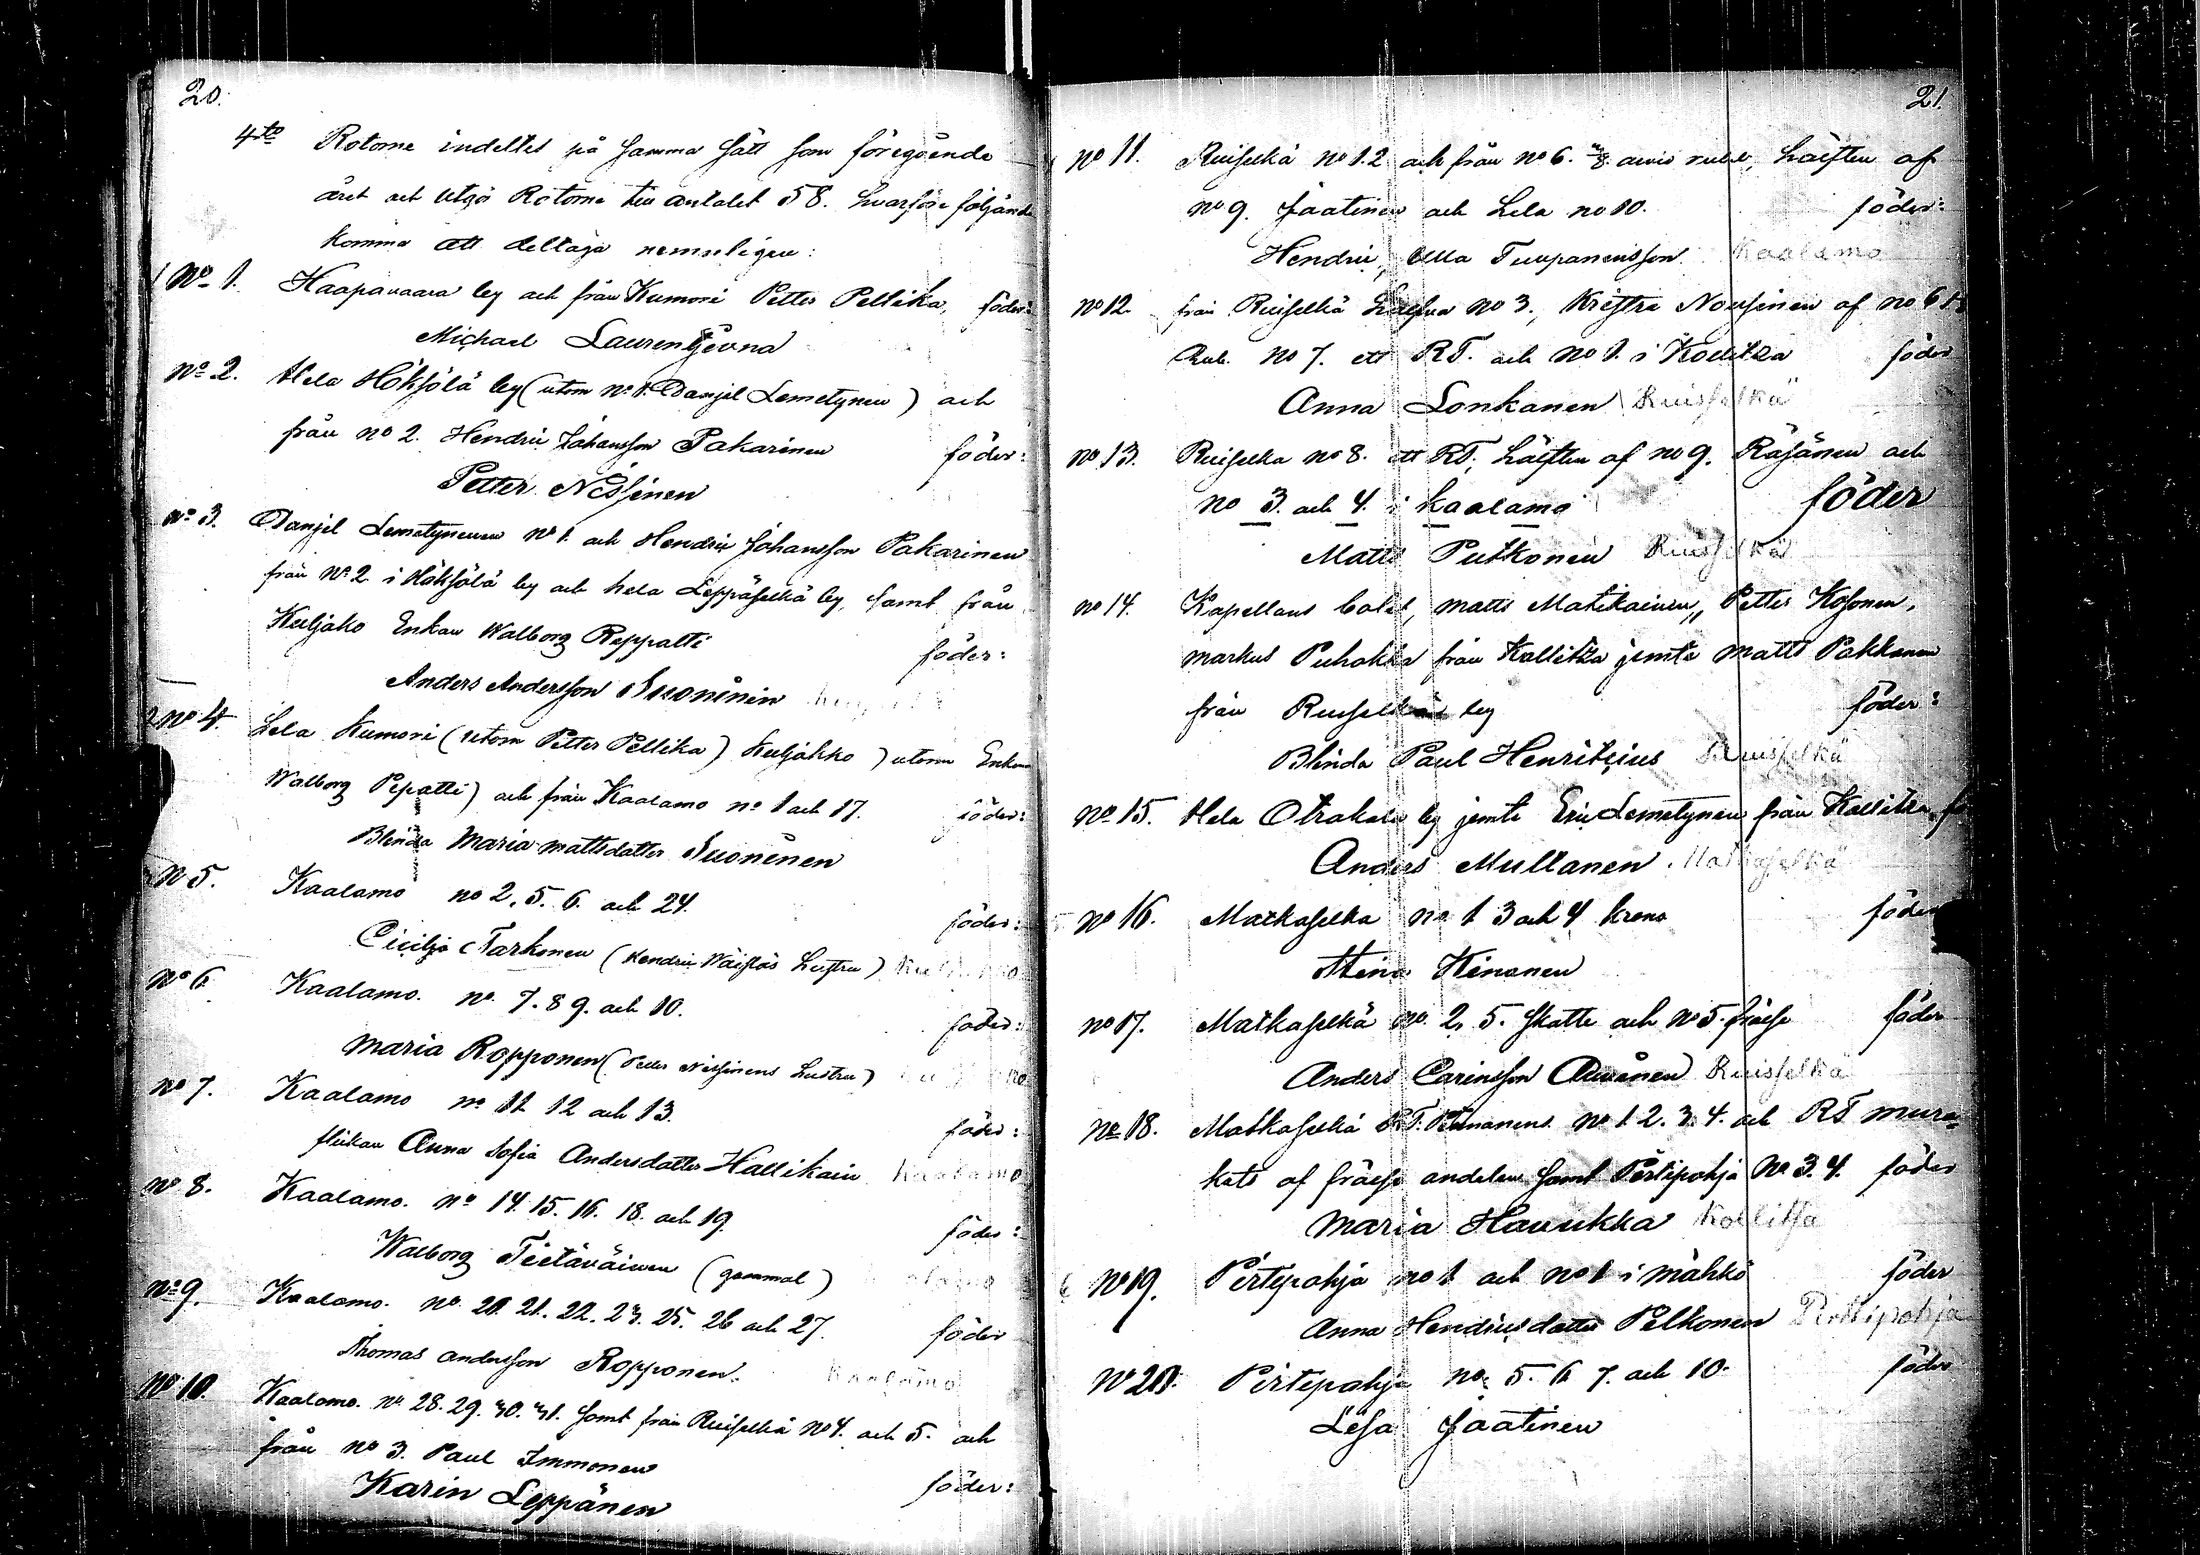 20.
4to Rotorne indeltes på samma sätt som föregående
året och utgör Rotorne till antalet 58. hvarföre följande
komma att deltaga nemnligen:
No 1. Haapavaara by och från Kumori Petter Pellika, föder:
Michael Laurentjevna
No 2. Hela Höksölä by (utom No 1. Danjel Lemetynen) och
från no 2. Hendric Johansson Pakarinen föder:
Petter Nissinen
No 3. Danjel Lemetyneuen No 1. och Hendric Johansson Pakarinen
från No 2 i Höksölä by och hela Leppäselkä by, samt från
Kuljako Enkan Walborg Reppatti föder:
Anders Andersson Suoninin
No 4. Hela Kumori (utom Petter Pellika) Kuljakko) utom Enkan
Walborg Pepatti) och från Kaalamo no 1 och 17. föder:
Blinda Maria mattsdotter Suoninen
No 5. Kaalamo no 2. 5. 6. och 24. föder:
Cicilja Tarkonen (Hendric Wäistös hustru)
No 6. Kaalamo. no. 7. 8 9. och 10. föder:
Maria Ropponen (Petter Nissinens hustru)
No 7. Kaalamo no 11 12 och 13. föder:
flickan Anna Sofia Andersdotter Hallikain Kaalamo
No 8. Kaalamo. no 14. 15. 16. 18. och 19. föder:
Walborg Tietäväinen (gammal)
No 9. Kaalamo. no. 20. 21. 22. 23. 25. 26 och 27. föder
Thomas andersson Ropponen. Kaalamo
No 10. Kaalamo. No 28. 29. 30. 31. samt från Ruiselkä No 4. och 5. och
från no 3. Paul Immonen föder:
Karin Leppänen
21.
No 11. Ruiselkä no 1. 2 och från no 6. hälften af
no 9. Jaatinen och hela no 10. föder:
Hendric, Ulla Tuupanensson Kaalamo
No 12. från Ruiselkä No 3., Kristra Nousinen af no 6
Rub. No 7. ett RT. och No 1. i Kollitza föder
Anna Lonkanen Ruisselkä
No 13. Ruiselka no 8. ett RT, hälften af no 9. Räsänen och
no 3. och 4. i Kaalamo föder
Matts Putkonen Ruisselkä
no 14. Kapellans bolet, matts Matikainen, Petter Kosonen,
markus Puhakka från Kollitza jemte matts Pakkanen
från Ruiselkä by föder:
Blinda Paul Henritzius Ruisselkä
No 15. Hela Otrakala by jemte Eric Lemetynen från Kollitza,
Anders Mullanen. Matkaselkä
no 16. Matkaselka no 1 3 och 4 krono föder
Stina Hinonen
no 17. Matkaselkä no. 2. 5. skatte och No 5. fräse föder
Anders Carinsson Auvinen Ruisselkä
No 18. Matkaselkä RT. no 1. 2. 3. 4. och RT mura-
kets af fräse andelen samt Pirtipohja No 3. 4. föder
Maria Havukka Kollitsa
No 19. Pirtipohja no 1 och no 1 i mähkö föder
Anna Hendricsdotter Pelkonen Pirttipohja
No 20. Pirtipohja no. 5. 6. 7. och 10. föder
Lisa Jaatinen